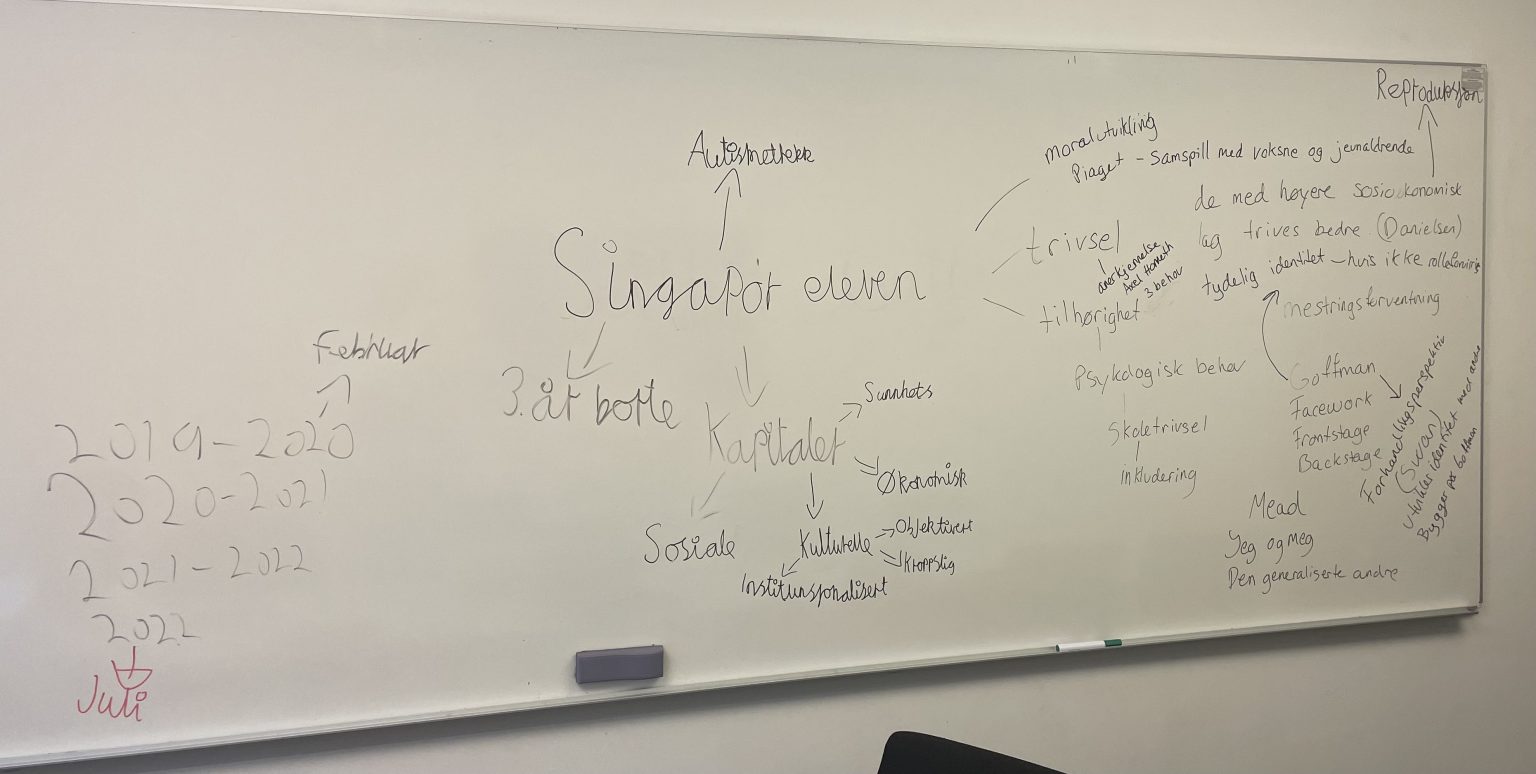 Februar
2019-2020
2020-2021
2021-2022
2022
Juli
Autismetrekk
Singapør eleven
3. år borte
Kapitaler
Sunnhets
Økonomisk
Sosiale
Kulturelle
Objektivert
Kroppslig
Institunsjonalisert
moralutvikling
Piaget - Samspill med voksne og jevnaldrende
Reproduksjon
de med høyere sosioøkonomisk
lag trives bedre (Danielsen)
tydelig identitet - hvis ikke
mestringsforventning
trivsel
anerkjennelse
Axel Honneth
3 behov
tilhørighet
Psykologisk behov
Skoletrivsel
inkludering
Goffman
Facework
Frontstage
Backstage
Forhandlingsperspektiv
(Swan)
Utvikles identitet med andre
Bygger på
Mead
Jeg og meg
Den generaliserte andre